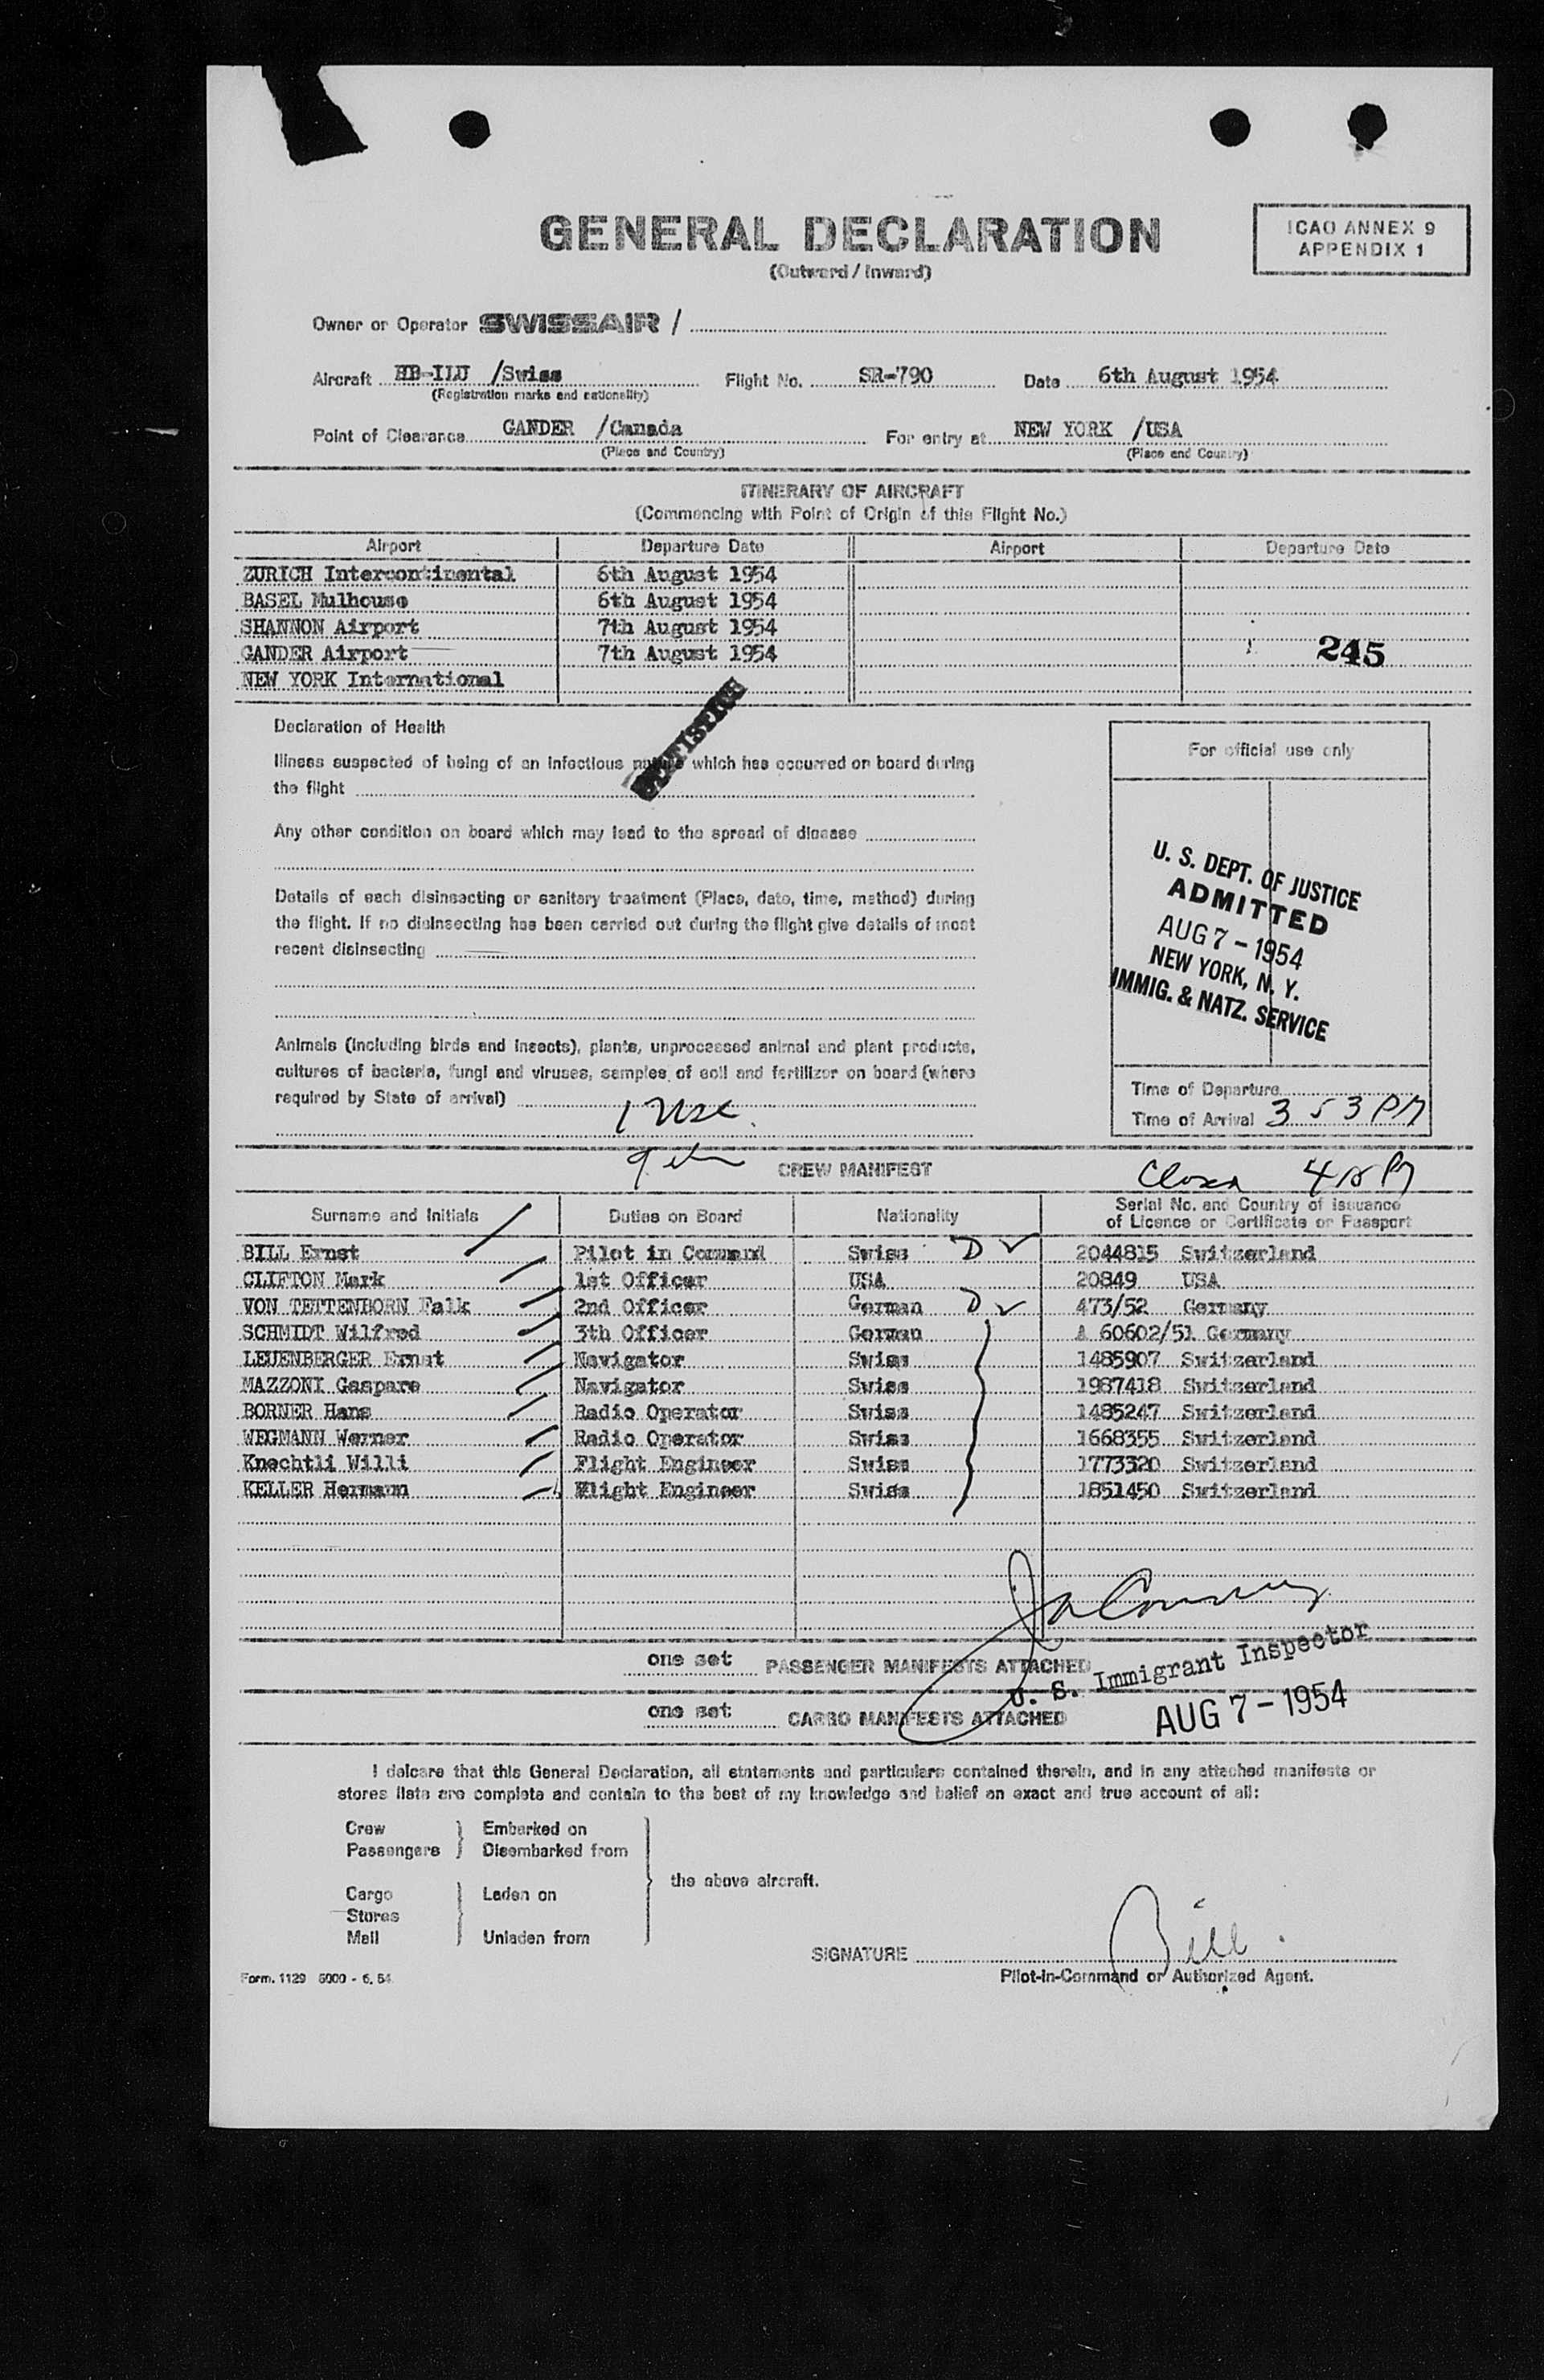 GENERAL DECLARATION
(Outward / Inward)
ICAO ANNEX 9
APPENDIX 1
Owner or Operator SWISSAIR /
Aircraft HB-ILU /Swiss Flight No. SR-790 Date 6th August 1954
(Registration marks and nationality)
Point of Clearance GANDER /Canada For entry at NEW YORK /USA
(Place and Country) (Place and Country)
ITINERARY OF AIRCRAFT
(Commencing with Point of Origin of this Flight No.)
Airport Departure Date Airport Departure Date
ZURICH Intercontinental 6th August 1954
BASEL Mulhouse 6th August 1954
SHANNON Airport 7th August 1954
GANDER Airport 7th August 1954 245
NEW YORK International
Declaration of Health
Illness suspected of being of an infectious nature which has occurred on board during
the flight
Any other condition on board which may lead to the spread of disease
Details of each disinsecting or sanitary treatment (Place, date, time, method) during
the flight. If no disinsecting has been carried out during the flight give details of most
recent disinsecting
Animals (including birds and insects), plants, unprocessed animal and plant products,
cultures of bacteria, fungi and viruses, samples of soil and fertilizer on board (where
required by State of arrival)
For official use only
U. S. DEPT. OF JUSTICE
ADMITTED
AUG 7 - 1954
NEW YORK, N. Y.
IMMIG. & NATZ. SERVICE
Time of Departure
Time of Arrival 3 53 PM
CREW MANIFEST
Surname and Initials Duties on Board Nationality Serial No. and Country of issuance
of Licence or Certificate or Passport
BILL Ernst Pilot in Command Swiss D 2044815 Switzerland
CLIFTON Mark 1st Officer USA 20849 USA
VON TETTENBORN Falk 2nd Officer German D 473/52 Germany
SCHMIDT Wilfred 3th Officer German A 60602/51 Germany
LEUENBERGER Ernst Navigator Swiss 1485907 Switzerland
MAZZONI Gaspare Navigator Swiss 1987418 Switzerland
BORNER Hans Radio Operator Swiss 1485247 Switzerland
WEGMANN Werner Radio Operator Swiss 1668355 Switzerland
Knechtli Willi Flight Engineer Swiss 1773320 Switzerland
KELLER Hermann Flight Engineer Swiss 1851450 Switzerland
one set PASSENGER MANIFESTS ATTACHED
U. S. Immigrant Inspector
one set CARGO MANIFESTS ATTACHED
AUG 7 - 1954
I delcare that this General Declaration, all statements and particulars contained therein, and in any attached manifests or
stores lists are complete and contain to the best of my knowledge and belief an exact and true account of all:
Crew Embarked on
Passengers Disembarked from
the above aircraft.
Cargo Laden on
Stores
Mail Unladen from
SIGNATURE Bill
Pilot-in-Command or Authorized Agent.
Form. 1129 5000 - 6. 54